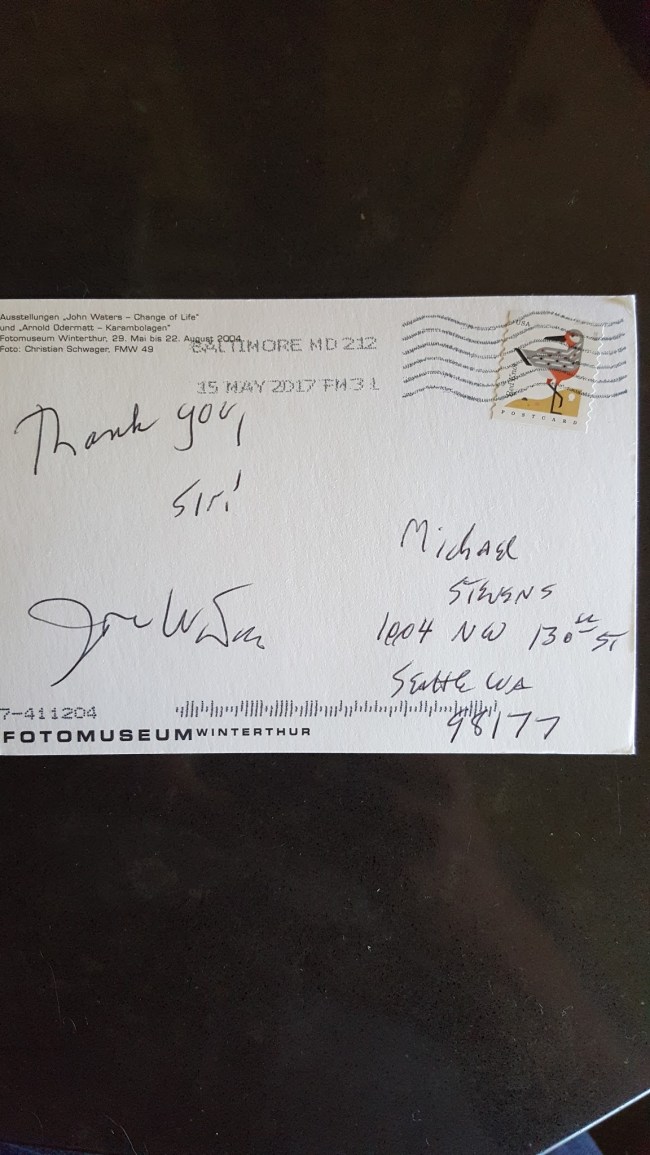 Ausstellungen „John Waters – Change of Life“
und „Arnold Odermatt – Karambolagen“
Fotomuseum Winterthur, 29. Mai bis 22. August 2004
Foto: Christian Schwager, FMW 49
BALTIMORE MD 212
15 MAY 2017 PM 3 L
USA
POSTCARD
Thank you,
Sir!
John Waters
Michael
Stevens
1004 NW 130th St
Seattle WA
98177
7-411204
FOTOMUSEUM WINTERTHUR